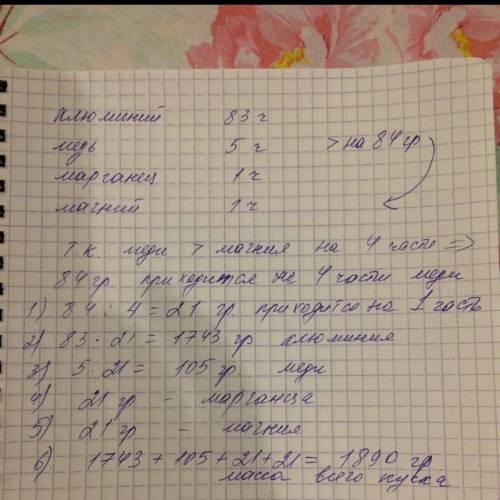 алюминий 83 ч
медь 5 ч > на 84 гр
марганец 1 ч
магний 1 ч
Т.к меди > магния на 4 части =>
84 гр. приходится на 4 части меди
1) 84 : 4 = 21 гр. приходится на 1 часть
2) 83 · 21 = 1743 гр алюминия
3) 5 · 21 = 105 гр. меди
4) 21 гр - марганца
5) 21 гр - магния
6) 1743 + 105 + 21 + 21 = 1890 гр
масса всего куска